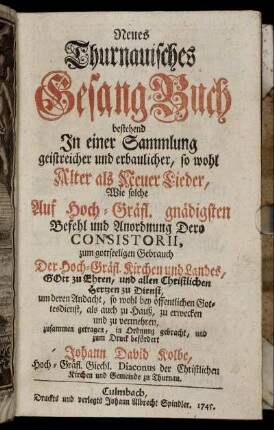 Neues
Thurnauisches
Gesang-Buch
bestehend
In einer Sammlung
geistreicher und erbaulicher, so wohl
Alter als Neuer Lieder,
Wie solche
Auf Hoch-Gräfl. gnädigsten
Befehl und Anordnung Dero
CONSISTORII,
zum gottseeligen Gebrauch
Der Hoch-Gräfl. Kirchen und Landes,
GOtt zu Ehren, und allen Christlichen
Hertzen zu Dienst,
um deren Andacht, so wohl bey öffentlichen Got-
tesdienst, als auch zu Hauß, zu erwecken
und zu vermehren,
zusammen getragen, in Ordnung gebracht, und
zum Druck befördert
Johann David Kolbe,
Hoch-Gräfl. Giechl. Diaconus der Christlichen
Kirchen und Gemeinde zu Thurnau.
Culmbach,
Druckts und verlegts Johann Albrecht Spindler. 1745.